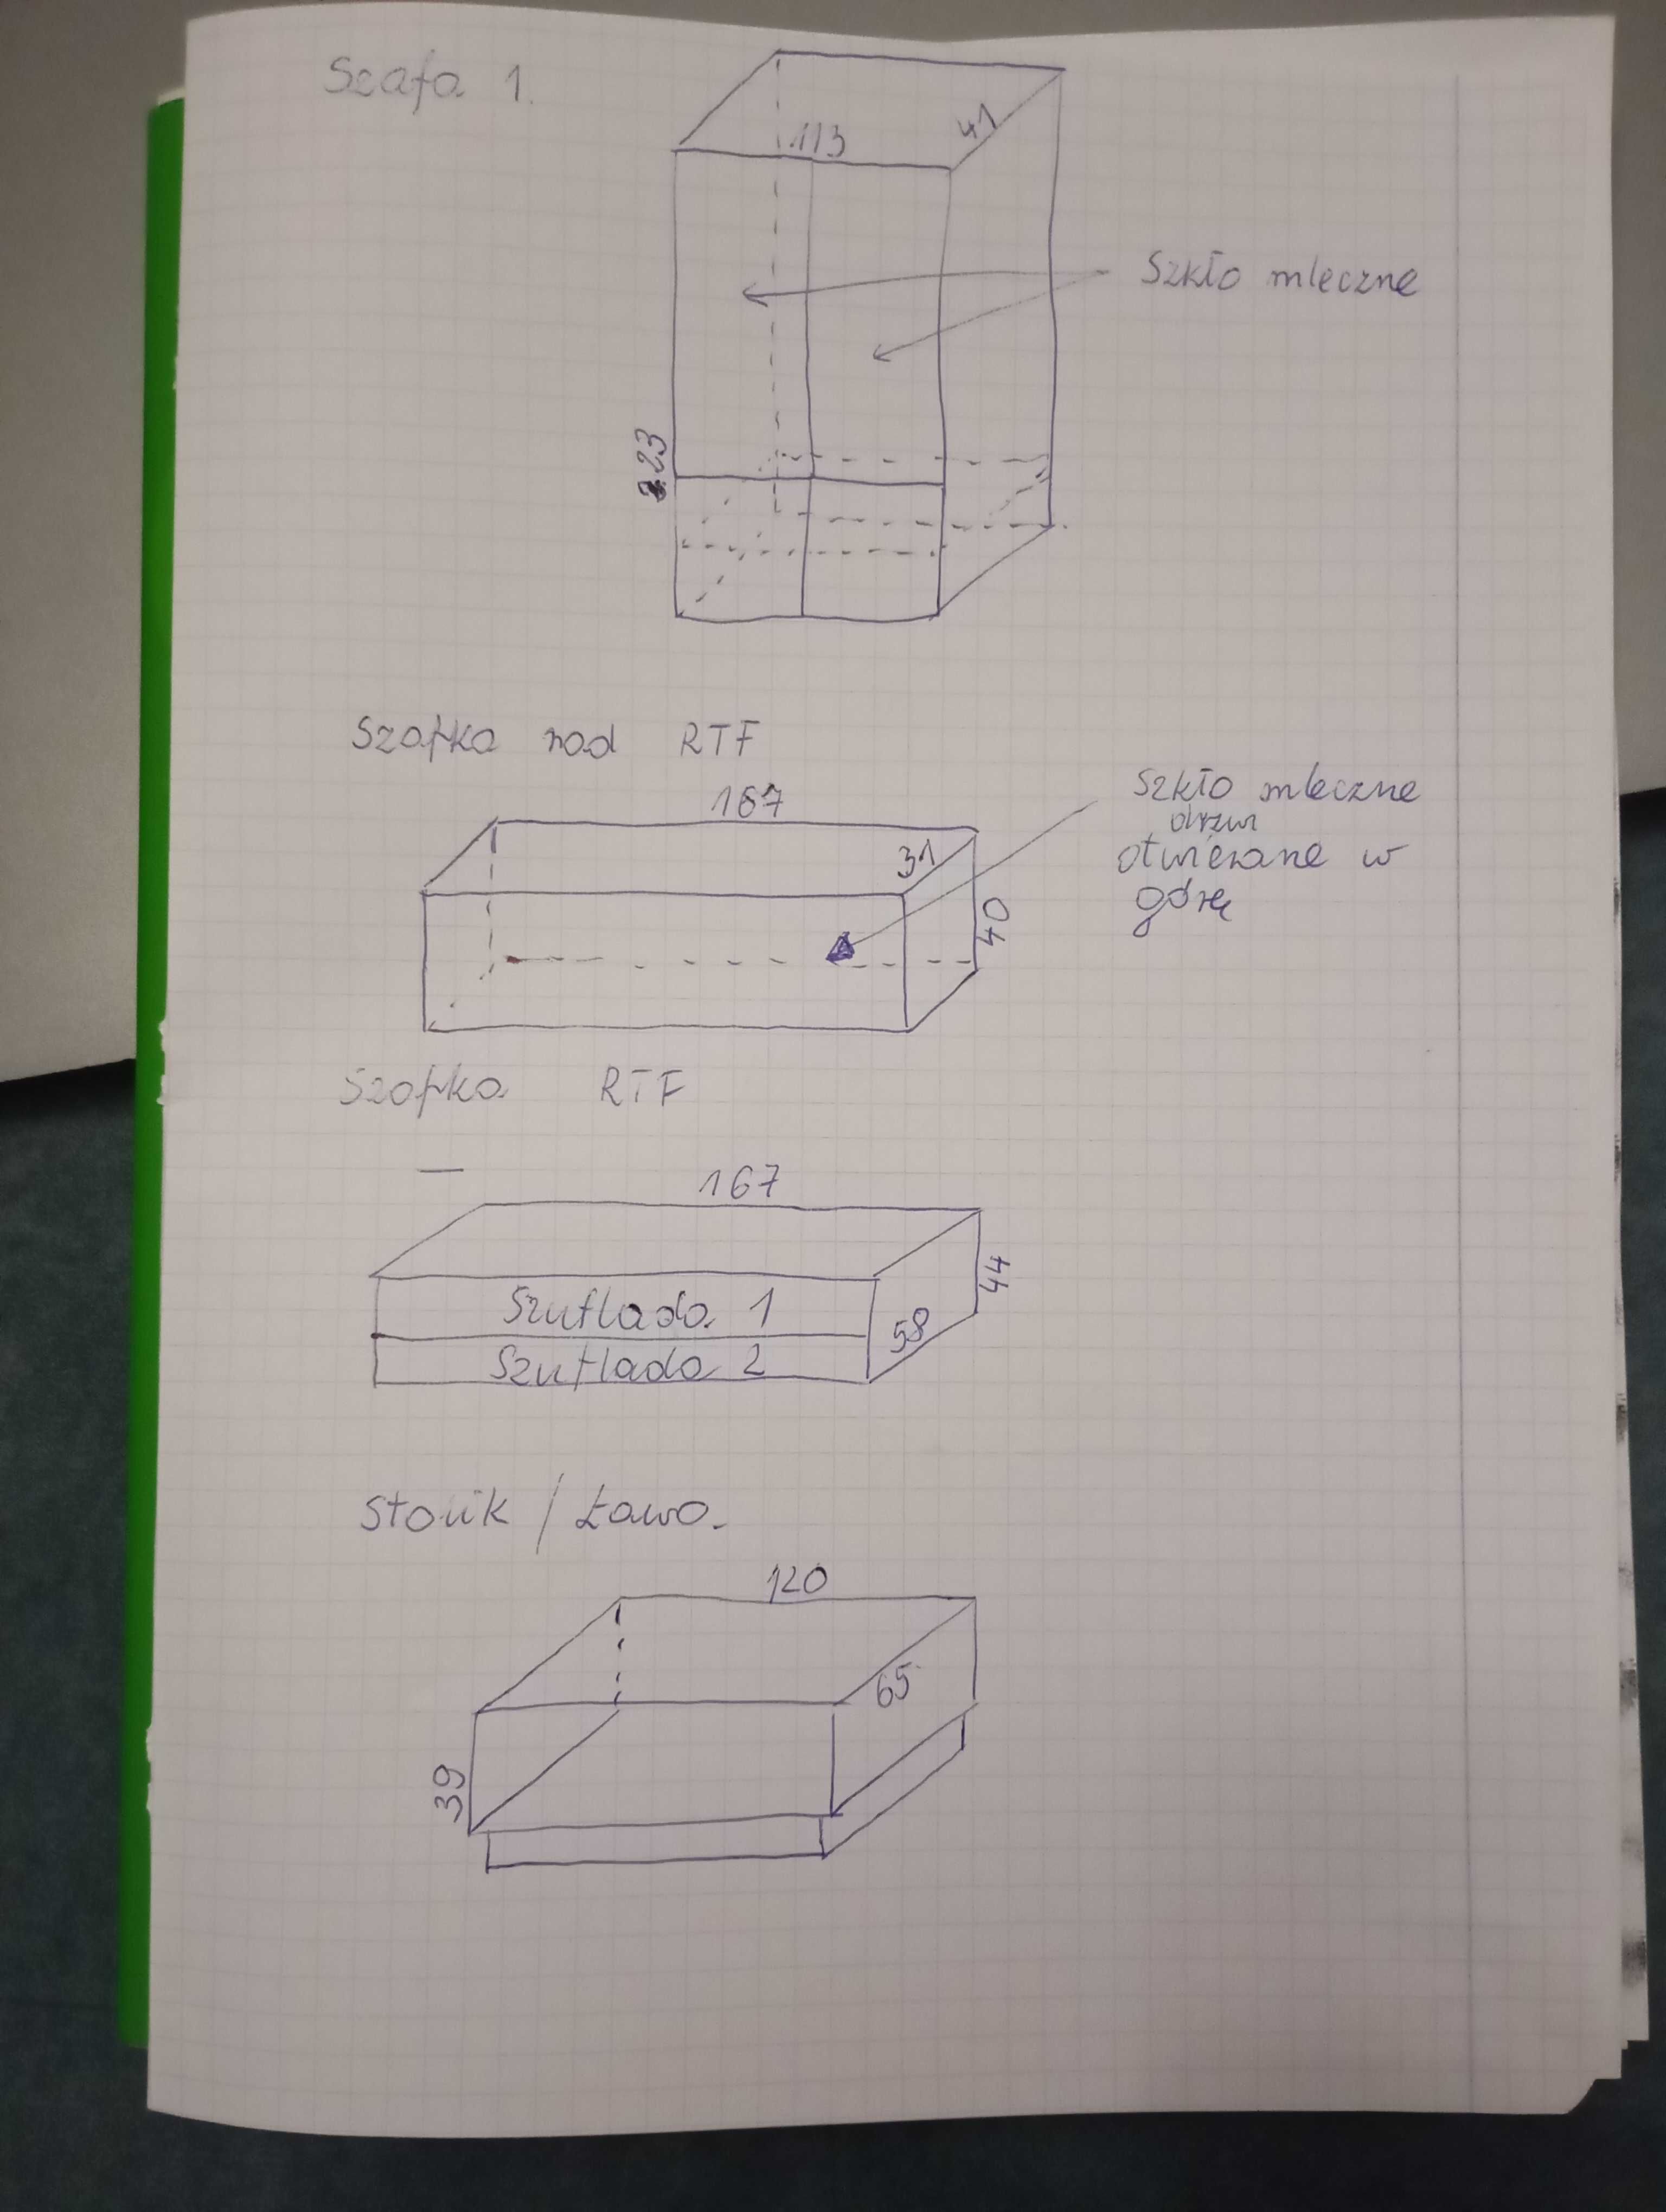 Szafa 1.
113
41
Szkło mleczne
223
Szafka nad RTF
167
31
40
Szkło mleczne
drzwi
otwierane w
górę
Szafka RTF
167
Szuflada 1
Szuflada 2
58
44
Stolik / Ława.
120
65
39